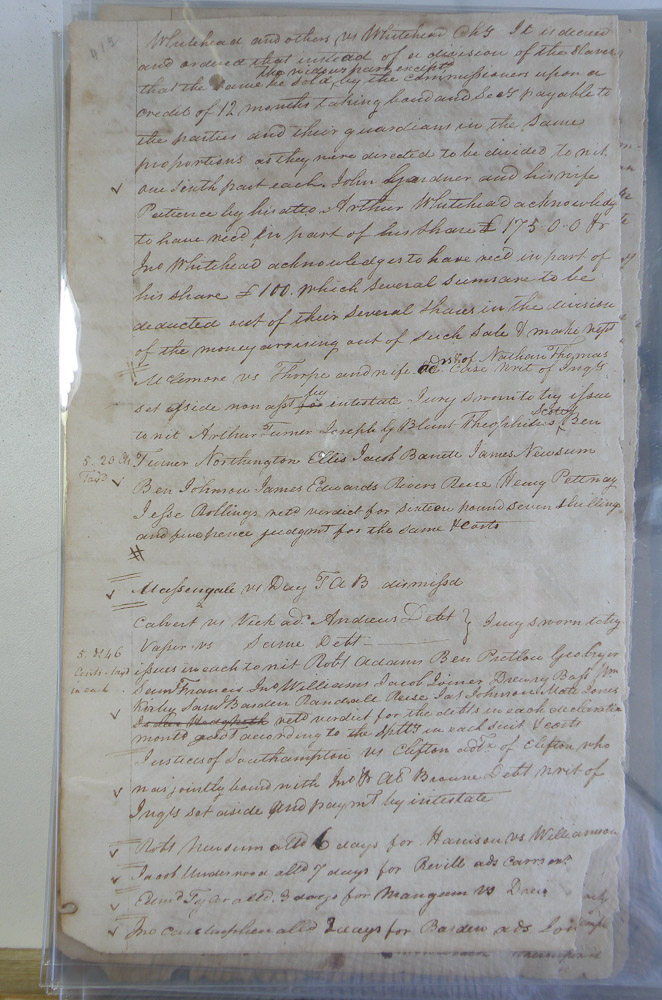 Whitehead and others vs Whitehead Ch'y It is decreed
and ordered that instead of a division of the Slaves
the widows part excepted
that the same be sold, by the commissioners upon a
credit of 12 months taking bond and Sec'y payable to
the parties and their guardians in the same
proportions as they were directed to be divided to wit
one Sixth part each, John Gardner and his wife
Patience by his atto. Arthur Whitehead acknowledg
to have recd in part of his Share £ 175 0-0 &
Jno Whitehead acknowledges to have recd in part of
his share £100. which several sums are to be
deducted out of their several shares in the division
of the money arising out of such sale & make rept
McLemore vs Thorpe and wife of Nathan Thomas
Case writ of Inq'y
set aside non asst by intestate Jury sworn to try issue
to wit Arthur Turner Joseph G Blunt Theophilus Scott Ben
5. 20
Turner Northington Ellis Jacob Barnes James Newsum
Ben Johnson James Edwards Reese Henry Pettway
Jesse Rollings retd verdict for Sixteen pound seven shillings
and five pence judgmt for the same & costs
#
Massengale vs Day T A B dismissd
Calvert vs Vick ad. Andrews Debt } Jury sworn to try
Vaser vs Same Debt
5. 46
in each
issues in each to wit Robt Adams Ben Pretlow
Saml Francis Jno Williams Jacob Joiner Drewry Bass Wm
Kirby Saml Barden Randall Reese Jas Johnson Jones
retd verdict for the debts in each declaration
judgt according to the in each suit & costs
Justices of Southampton vs Clifton of Clifton who
was jointly bound with Jno A E Browne Debt writ of
Inq'y set aside and paymt by intestate
Robt Newsum alld 6 days for Harrison vs Williamson
Jacob Underwood alld 7 days for Revill ads
Edmd Tyler alld. 3 days for Mangum vs
Jno alld 2 days for Barden ads